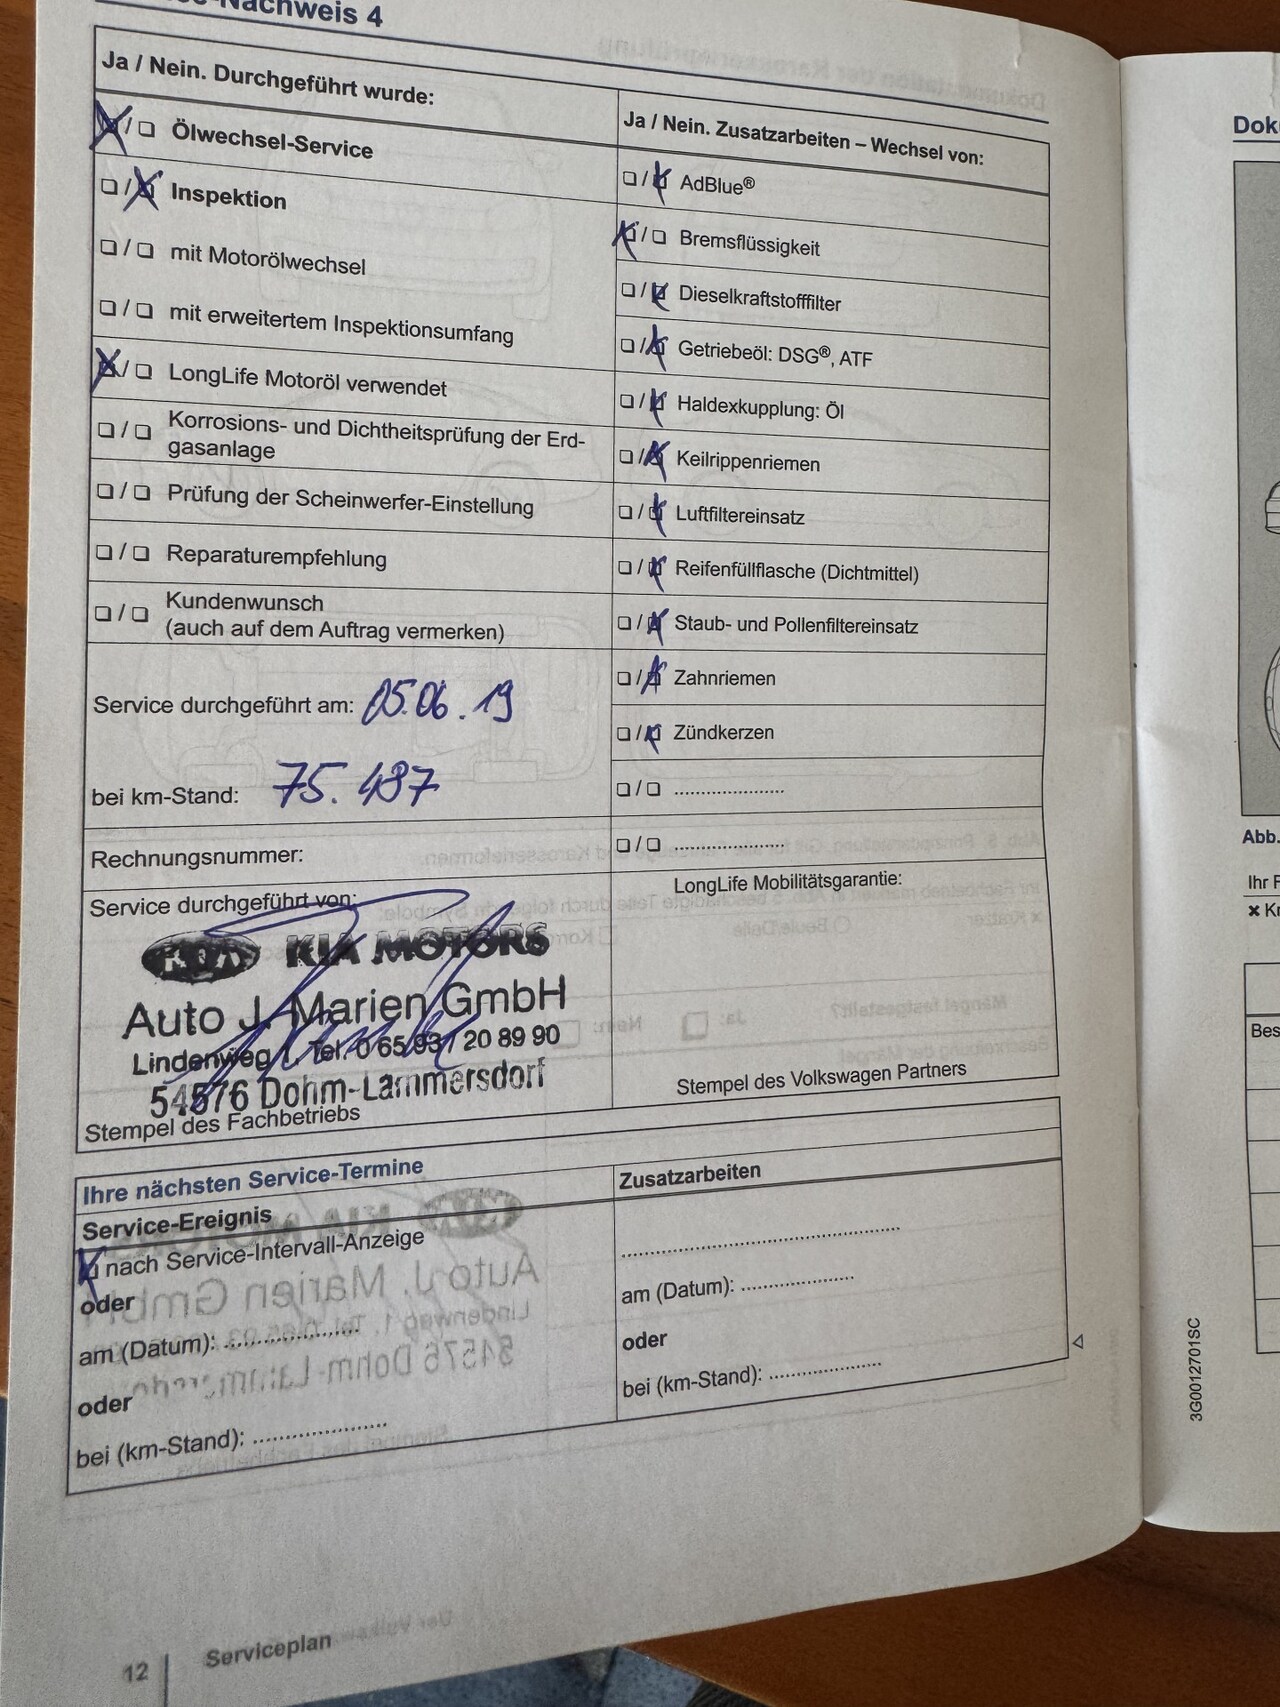 Nachweis 4
Ja / Nein. Durchgeführt wurde:
❑ / ❑ Ölwechsel-Service
❑ / ❑ Inspektion
❑ / ❑ mit Motorölwechsel
❑ / ❑ mit erweitertem Inspektionsumfang
❑ / ❑ LongLife Motoröl verwendet
❑ / ❑ Korrosions- und Dichtheitsprüfung der Erd-
gasanlage
❑ / ❑ Prüfung der Scheinwerfer-Einstellung
❑ / ❑ Reparaturempfehlung
❑ / ❑ Kundenwunsch
(auch auf dem Auftrag vermerken)
Service durchgeführt am: 05.06.19
bei km-Stand: 75.487
Rechnungsnummer:
Service durchgeführt von:
KIA KIA MOTORS
Auto J. Marien GmbH
Lindenweg 1, Tel. 0 65 93 / 20 89 90
54576 Dohm-Lammersdorf
Stempel des Fachbetriebs
Ja / Nein. Zusatzarbeiten – Wechsel von:
❑ / ❑ AdBlue®
❑ / ❑ Bremsflüssigkeit
❑ / ❑ Dieselkraftstofffilter
❑ / ❑ Getriebeöl: DSG®, ATF
❑ / ❑ Haldexkupplung: Öl
❑ / ❑ Keilrippenriemen
❑ / ❑ Luftfiltereinsatz
❑ / ❑ Reifenfüllflasche (Dichtmittel)
❑ / ❑ Staub- und Pollenfiltereinsatz
❑ / ❑ Zahnriemen
❑ / ❑ Zündkerzen
❑ / ❑ .....................
❑ / ❑ .....................
LongLife Mobilitätsgarantie:
Stempel des Volkswagen Partners
Ihre nächsten Service-Termine
Service-Ereignis
❑ nach Service-Intervall-Anzeige
oder
am (Datum): .....................
oder
bei (km-Stand): .....................
Zusatzarbeiten
...........................................
am (Datum): .....................
oder
bei (km-Stand): .....................
12 Serviceplan
3G0012701SC
Abb.
Ihr